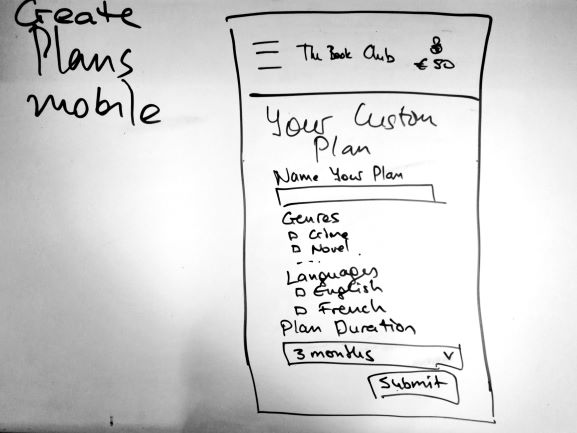 Create
Plans
mobile
The Book Club
€ 50
Your Custom
Plan
Name Your Plan
Genres
Crime
Novel
...
Languages
English
French
Plan Duration
3 months
Submit